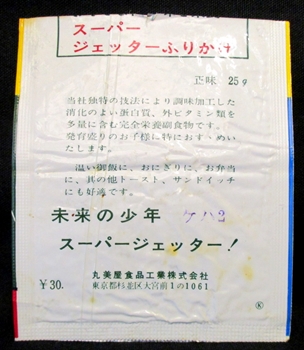 スーパー
ジェッターふりかけ
正味 25g
当社独特の技法により調味加工した
消化のよい蛋白質、外ビタミン類を
多量に含む完全栄養副食物です。
発育盛りのお子様に特におすゝめい
たします。
温い御飯に、おにぎりに、お弁当
に、其の他トースト、サンドイッチ
にも好適です。
未来の少年
ケハ2
スーパージェッター!
丸美屋食品工業株式会社
東京都杉並区大宮前1の1061
¥30.
K